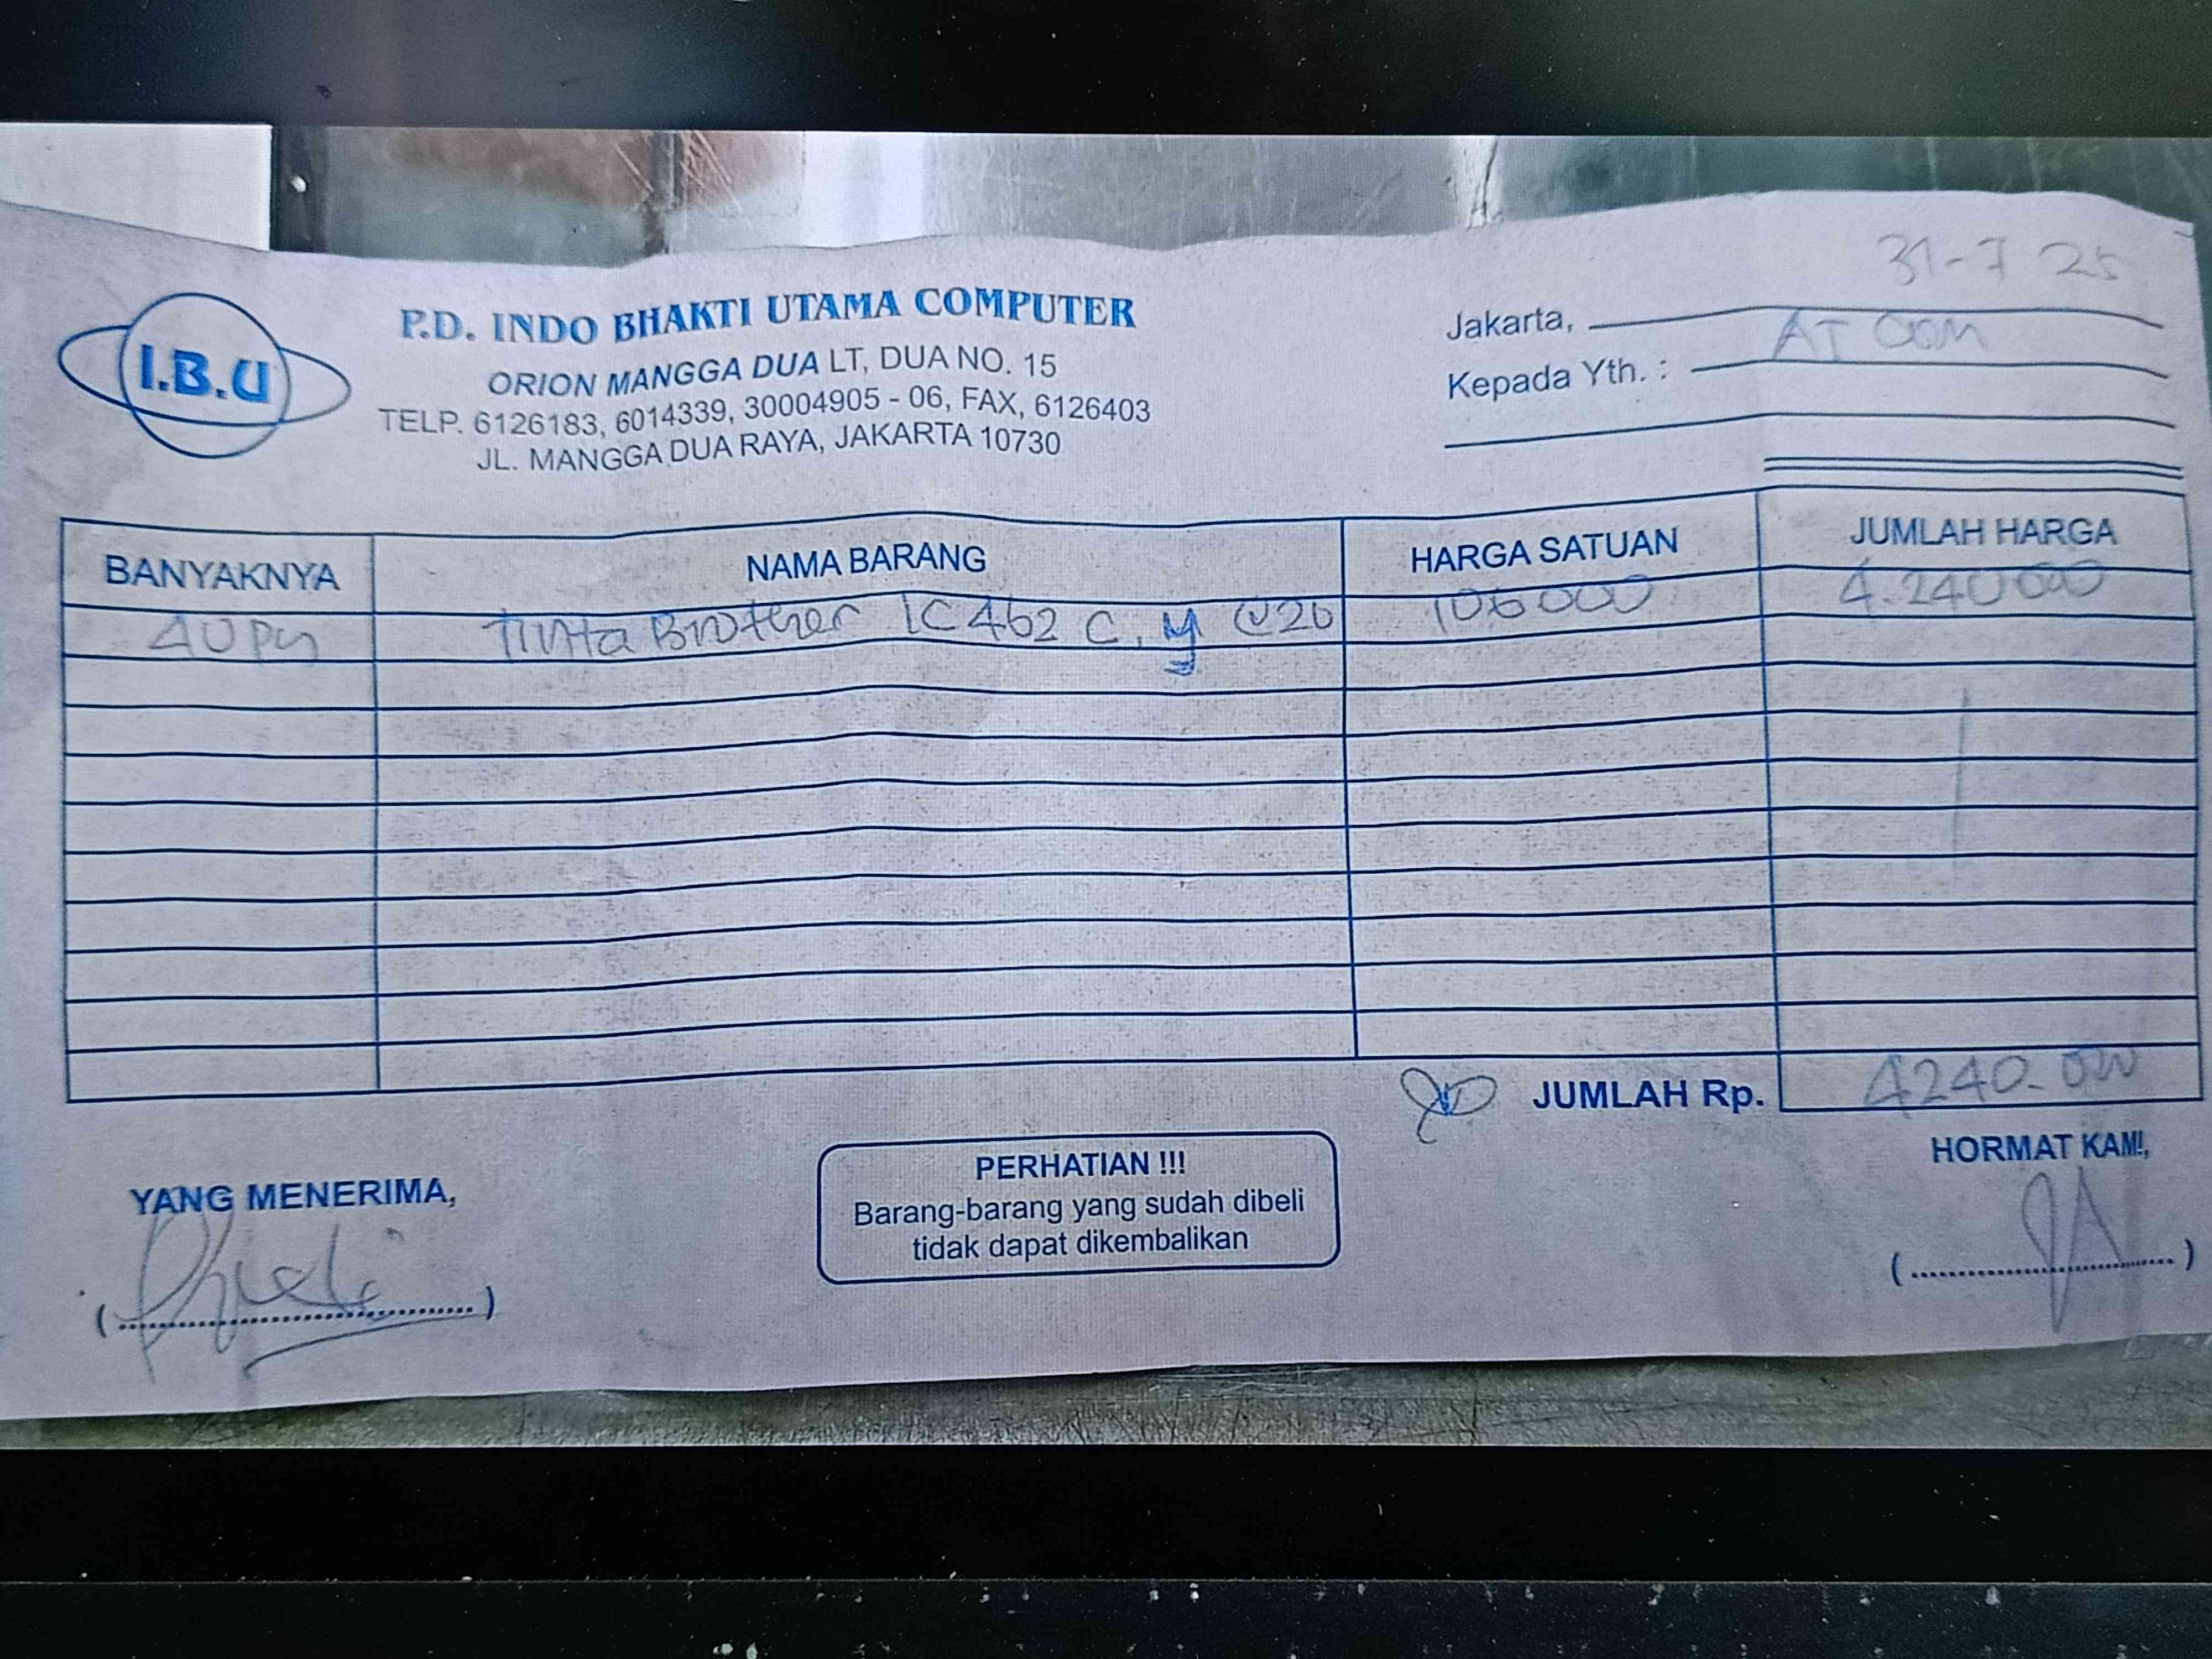 31-7 25
P.D. INDO BHAKTI UTAMA COMPUTER
I.B.U
ORION MANGGA DUA LT, DUA NO. 15
TELP. 6126183, 6014339, 30004905 - 06, FAX, 6126403
JL. MANGGA DUA RAYA, JAKARTA 10730
Jakarta,
Kepada Yth. : AT COM
BANYAKNYA NAMA BARANG HARGA SATUAN JUMLAH HARGA
40 Tinta Brother LC 462 C, y @20 106 000 4.240 000
JUMLAH Rp. 4240.000
YANG MENERIMA,
PERHATIAN !!!
Barang-barang yang sudah dibeli
tidak dapat dikembalikan
HORMAT KAMI,